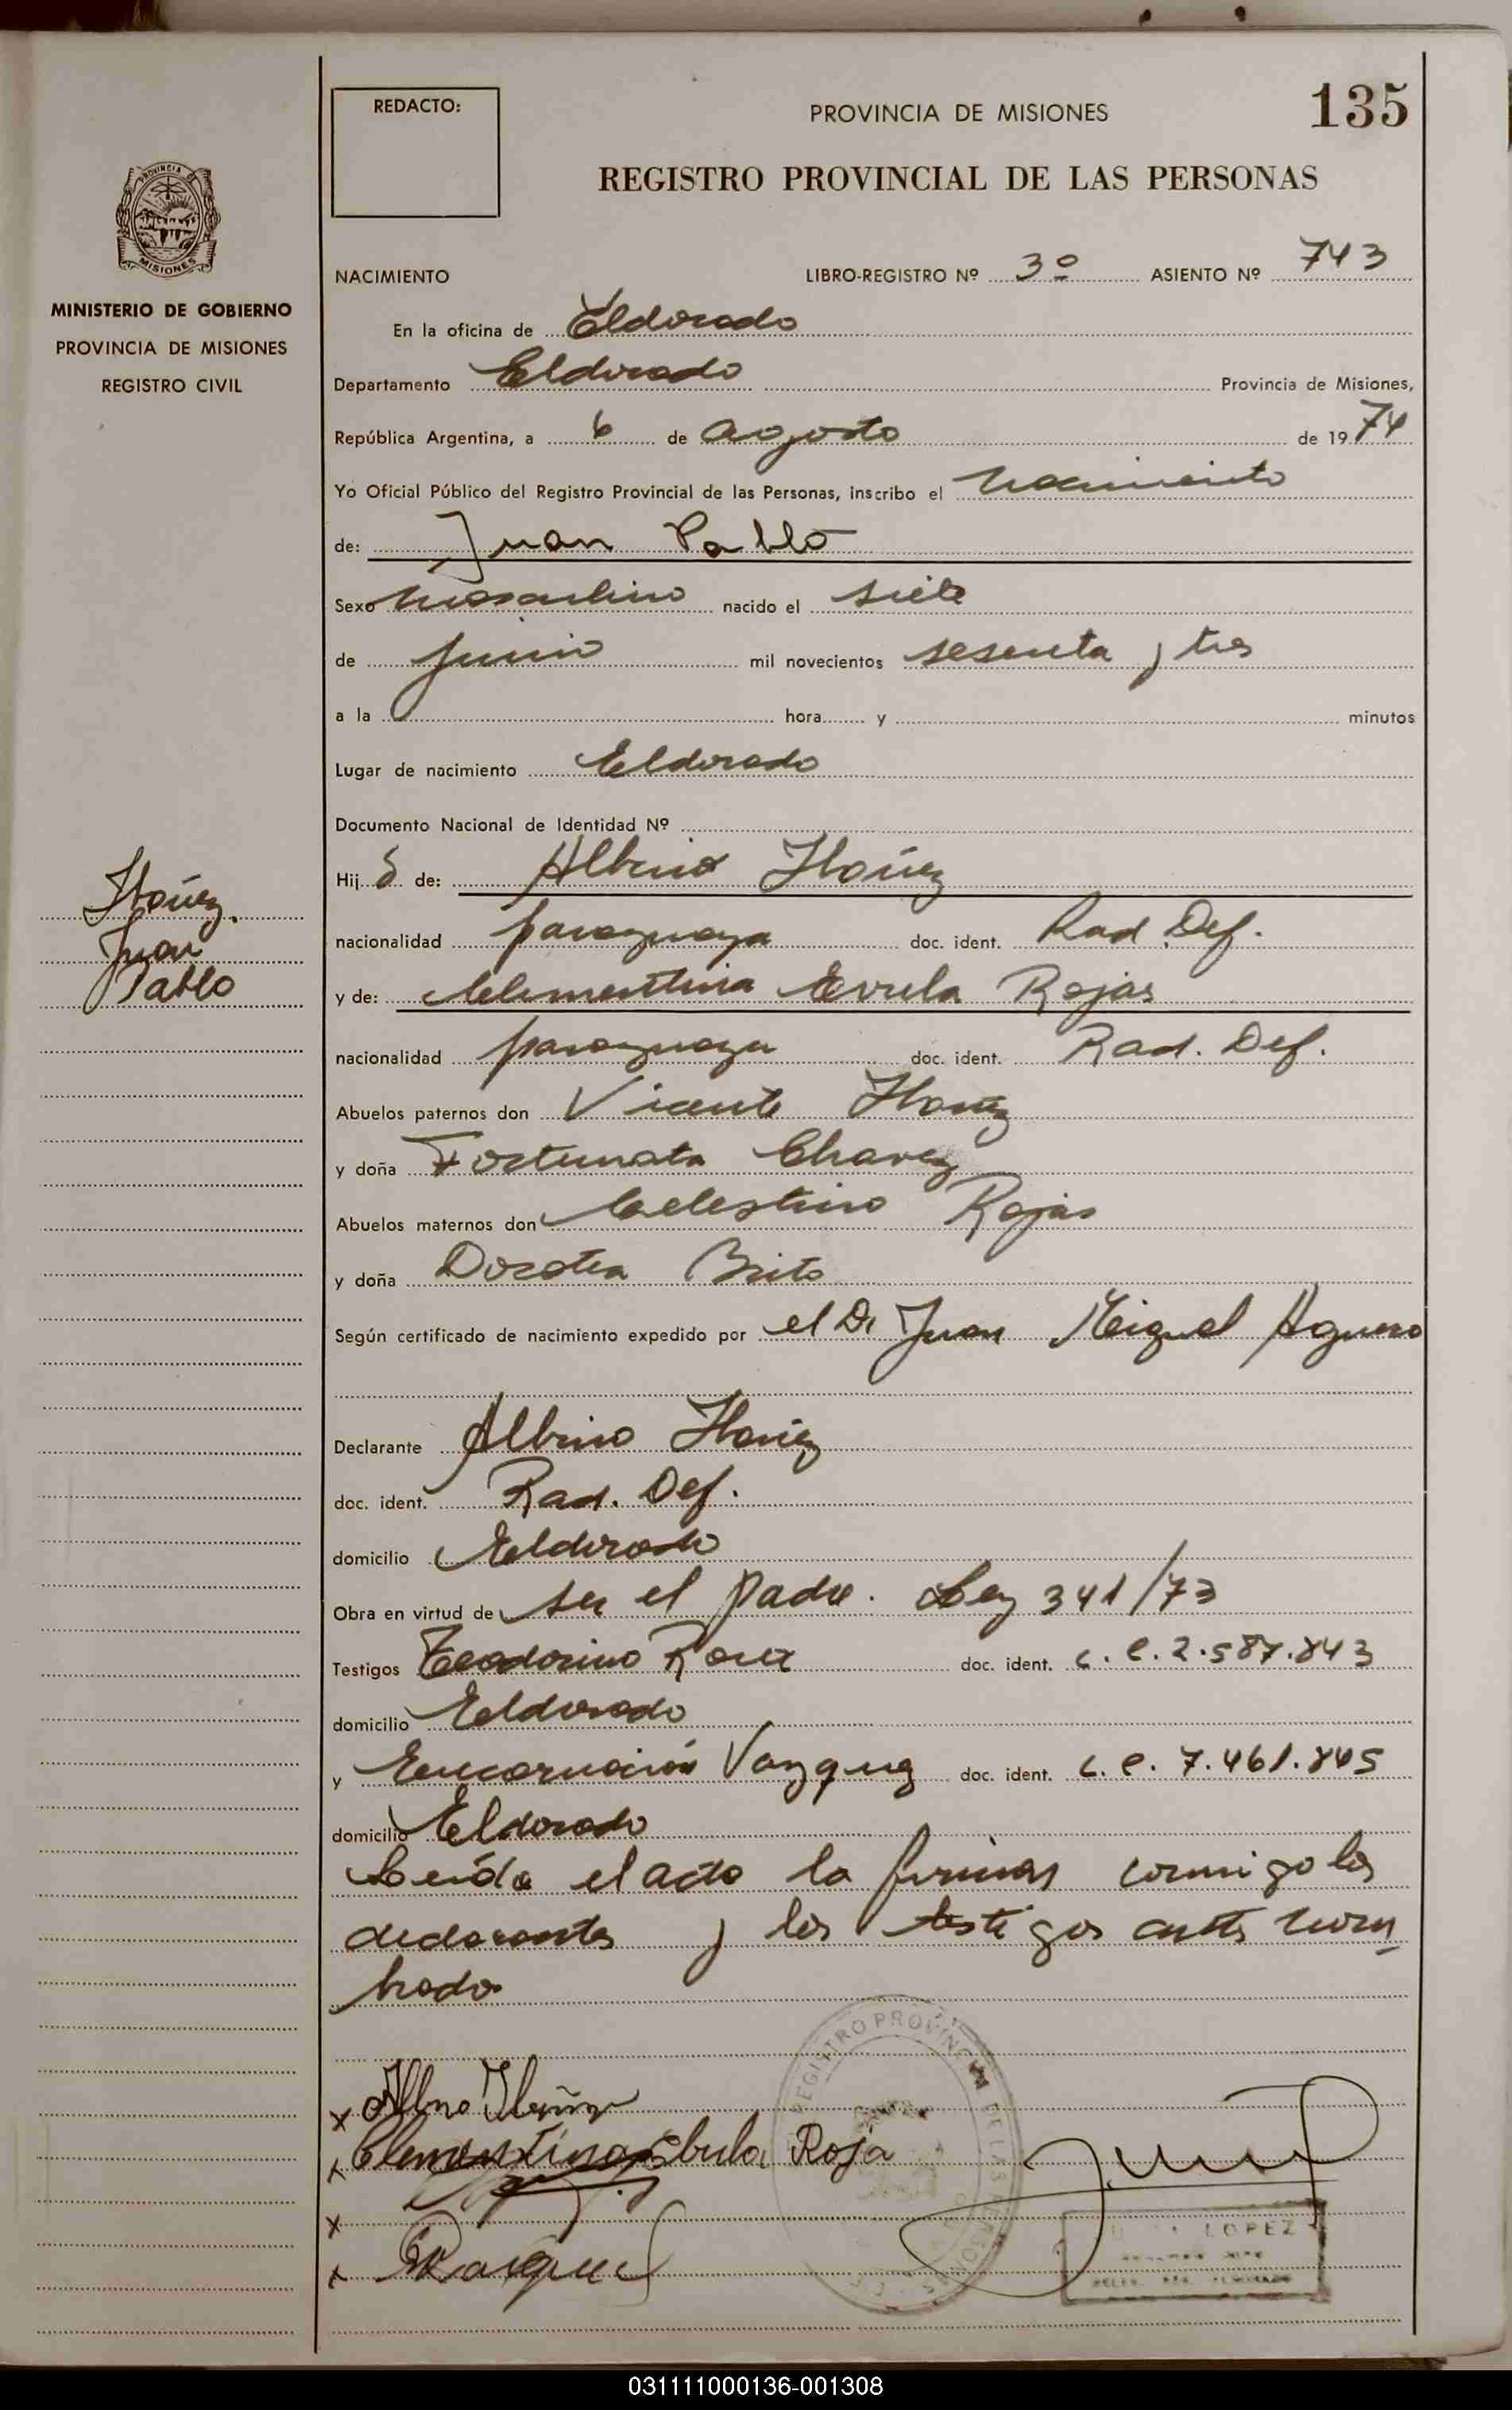 REDACTO:
PROVINCIA DE MISIONES
135
REGISTRO PROVINCIAL DE LAS PERSONAS
PROVINCIA DE
MISIONES
MINISTERIO DE GOBIERNO
PROVINCIA DE MISIONES
REGISTRO CIVIL
NACIMIENTO LIBRO-REGISTRO Nº 3º ASIENTO Nº 743
En la oficina de Eldorado
Departamento Eldorado Provincia de Misiones,
República Argentina, a 6 de agosto de 1974
Yo Oficial Público del Registro Provincial de las Personas, inscribo el nacimiento
de: Juan Pablo
Sexo masculino nacido el siete
de junio mil novecientos sesenta y tres
a la hora y minutos
Lugar de nacimiento Eldorado
Documento Nacional de Identidad Nº
Hijo de: Albino Ibañez
Ibáñez.
Juan
Pablo
nacionalidad paraguaya doc. ident. Rad. Def.
y de: Clementina Evula Rojas
nacionalidad paraguaya doc. ident. Rad. Def.
Abuelos paternos don Vicente Ibañez
y doña Fortunata Chavez
Abuelos maternos don Celestino Rojas
y doña Dorotea Brito
Según certificado de nacimiento expedido por el Dr Juan Miguel Aguero
Declarante Albino Ibañez
doc. ident. Rad. Def.
domicilio Eldorado
Obra en virtud de ser el padre. Ley 341/73
Testigos Teodorino doc. ident. C. C. 2.587.843
domicilio Eldorado
y Encarnación Vazquez doc. ident. C. C. 7.461.845
domicilio Eldorado
Leída el acta la firman conmigo los
declarantes y los testigos antes nom
brados
REGISTRO PROVINCIAL DE LAS PERSONAS
x Albino Ibañez
x Clementina Ebula Roja
x
x
LOPEZ
031111000136-001308